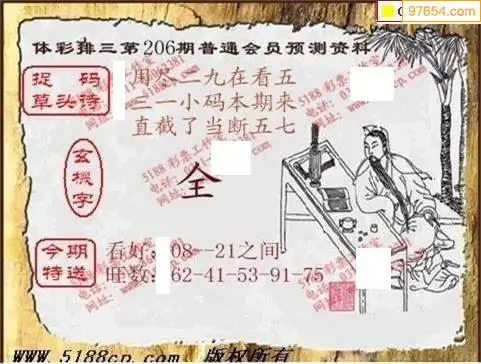 97654.com
体彩排三第206期普通会员预测资料
捉码
草头诗
周八二九在看五
三一小码本期来
直截了当断五七
玄機字
全
今期
特送
看好:08--21之间
旺数:62-41-53-91-75
5188彩票工作室
www.5188cp.com 版权所有